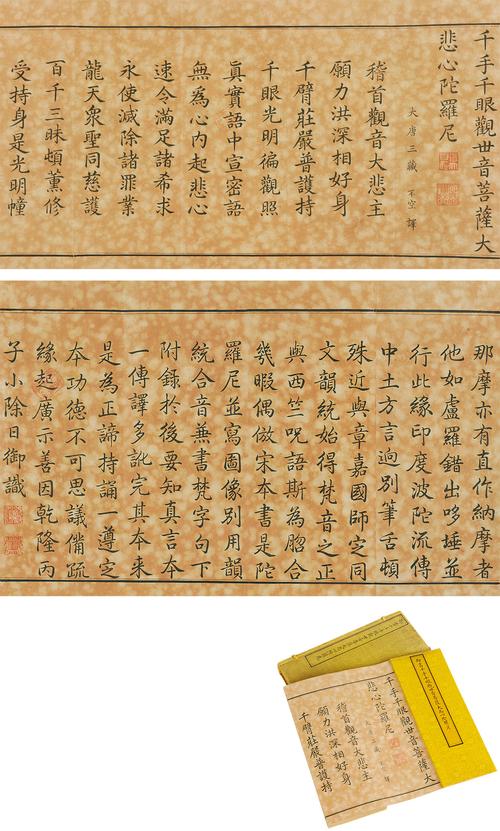 千手千眼觀世音菩薩大
悲心陀羅尼
大唐三藏 不空 譯
稽首觀音大悲主
願力洪深相好身
千臂莊嚴普護持
千眼光明徧觀照
眞實語中宣密語
無為心內起悲心
速令滿足諸希求
永使滅除諸罪業
龍天衆聖同慈護
百千三昧頓薰修
受持身是光明幢
那摩亦有直作納摩者
他如盧羅錯出哆埵並
行此緣印度波陀流傳
中土方言逈別筆舌頓
殊近與章嘉國師定同
文韻統始得梵音之正
與西竺呪語斯為脗合
幾暇偶倣宋本書是陀
羅尼並寫圖像別用韻
統合音兼書梵字句下
附錄於後要知真言本
一傳譯多訛完其本來
是為正諦持誦一遵定
本功德不可思議備疏
緣起廣示善因乾隆丙
子小除日御識
千手千眼觀世音菩薩大
悲心陀羅尼
稽首觀音大悲主
願力洪深相好身
千臂莊嚴普護持